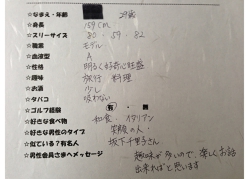 ☆なまえ・年齢 29歳
☆身長 159cm
☆スリーサイズ 80・59・82
☆職業 モデル
☆血液型 A
☆性格 明るく好奇心旺盛
☆趣味 旅行 料理
☆お酒 少し
☆タバコ 吸わない
☆ゴルフ経験 有・無
☆好きな食べ物 和食・イタリアン
☆好きな男性のタイプ 笑顔の人
☆似ている?有名人 坂下千里子さん
☆男性会員さまへメッセージ 趣味が多いので、楽しくお話
出来ればと思います